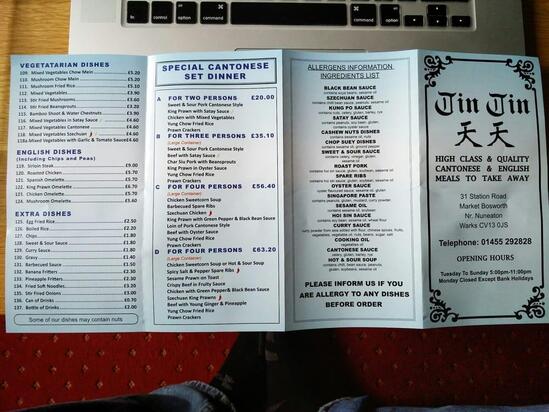 control
option
command
command
option
VEGETATARIAN DISHES
109. Mixed Vegetables Chow Mein £5.20
110. Mushroom Chow Mein £5.20
111. Mushroom Fried Rice £5.10
112. Mixed Vegetables £3.90
113. Stir Fried Mushrooms £3.60
114. Stir Fried Beansprouts £3.20
115. Bamboo Shoot & Water Chestnuts £3.90
116. Mixed Vegetables in Satay Sauce £4.60
117. Mixed Vegetables Cantonese £4.60
118. Mixed Vegetables Szechuan £4.60
118a. Mixed Vegetables with Garlic & Tomato Sauce £4.60
ENGLISH DISHES
(Including Chips and Peas)
119. Sirloin Steak £9.00
120. Roasted Chicken £5.70
121. Spanish Omelette £5.70
122. King Prawn Omelette £6.70
123. Chicken Omelette £5.70
124. Mushroom Omelette £5.60
EXTRA DISHES
125. Egg Fried Rice £2.50
126. Boiled Rice £2.20
127. Chips £1.80
128. Sweet & Sour Sauce £1.80
129. Curry Sauce £1.80
130. Gravy £1.40
131. Barbecued Sauce £2.50
132. Banana Fritters £2.30
133. Pineapple Fritters £2.30
134. Fried Soft Noodles £3.20
135. Stir Fried Onions £3.00
136. Can of Drinks £0.70
137. Bottle of Drinks £2.00
Some of our dishes may contain nuts
SPECIAL CANTONESE
SET DINNER
A FOR TWO PERSONS £20.00
Sweet & Sour Pork Cantonese Style
King Prawn in Black Bean Sauce
Chicken with Mixed Vegetables
Yung Chow Fried Rice
Prawn Crackers
B FOR THREE PERSONS £35.10
(Large Container)
Sweet & Sour Pork Cantonese Style
Beef with Satay Sauce
Char Siu Pork with Beansprouts
King Prawn in Oyster Sauce
Chicken with Mixed Vegetables
Yung Chow Fried Rice
Prawn Crackers
C FOR FOUR PERSONS £56.40
(Large Container)
Chicken Sweetcorn Soup
Barbecued Spare Ribs
Szechuan Chicken
King Prawn with Green Pepper & Black Bean Sauce
Loin of Pork Cantonese Style
Beef with Oyster Sauce
Yung Chow Fried Rice
Prawn Crackers
D FOR FOUR PERSONS £63.20
(Large Container)
Chicken Sweetcorn Soup or Hot & Sour Soup
Spicy Salt & Pepper Spare Ribs
Sesame Prawn on Toast
Crispy Beef in Fruity Sauce
Chicken with Green Pepper & Black Bean Sauce
Szechuan King Prawns
Beef with Young Ginger & Pineapple
Yung Chow Fried Rice
Prawn Crackers
ALLERGENS INFORMATION
INGREDIENTS LIST
BLACK BEAN SAUCE
contains soya beans, sesame oil
SZECHUAN SAUCE
contains chilli bean sauce, peanuts, sesame oil
KUNG PO SAUCE
contains nuts, celery, gluten, barley, rye
SATAY SAUCE
contains peanuts, soy bean, gluten,
CASHEW NUTS DISHES
contains sesame oil, nuts
CHOP SUEY DISHES
contains sesame oil, ground pepper
SWEET & SOUR SAUCE
contains celery, vinegar, gluten,
ROAST PORK
contains hoi sin sauce, gluten, soybean, sesame oil
SPARE RIBS
OYSTER SAUCE
oyster flavoured sauce, sesame oil, gluten
SINGAPORE PASTE
contains peanuts, gluten, curry, mustard
SESAME OIL
contains sesame oil, soybean
HOI SIN SAUCE
contains soy bean, wheat flour
CURRY SAUCE
COOKING OIL
CANTONESE SAUCE
celery, gluten, barley, rye
HOT & SOUR SOUP
contains chilli, bean sauce, peanuts,
PLEASE INFORM US IF YOU
ARE ALLERGY TO ANY DISHES
BEFORE ORDER
Tin Tin
天天
HIGH CLASS & QUALITY
CANTONESE & ENGLISH
MEALS TO TAKE AWAY
31 Station Road
Market Bosworth
Nr. Nuneaton
Warks CV13 0JS
Telephone: 01455 292828
OPENING HOURS
Tuesday To Sunday 5:00pm-11:00pm
Monday Closed Except Bank Holidays